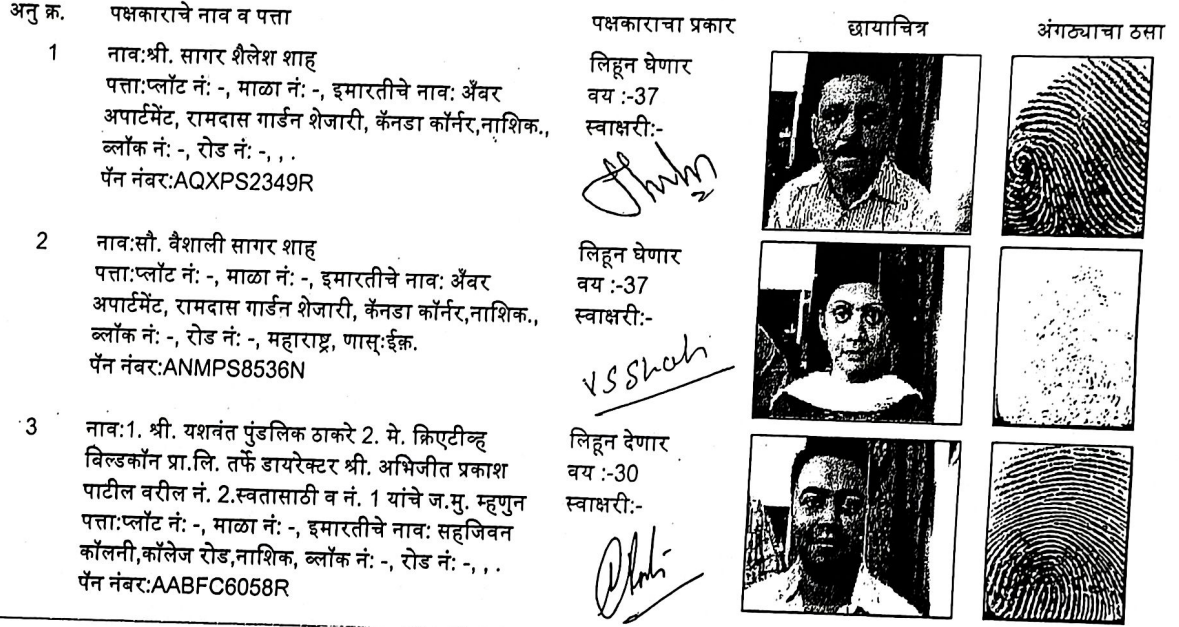 अनु क्र. पक्षकाराचे नाव व पत्ता पक्षकाराचा प्रकार छायाचित्र अंगठ्याचा ठसा
1 नाव:श्री. सागर शैलेश शाह
पत्ता:प्लॉट नं: -, माळा नं: -, इमारतीचे नाव: अँवर
अपार्टमेंट, रामदास गार्डन शेजारी, कॅनडा कॉर्नर,नाशिक.,
ब्लॉक नं: -, रोड नं: -, , .
पॅन नंबर:AQXPS2349R
लिहून घेणार
वय :-37
स्वाक्षरी:-
2 नाव:सौ. वैशाली सागर शाह
पत्ता:प्लॉट नं: -, माळा नं: -, इमारतीचे नाव: अँवर
अपार्टमेंट, रामदास गार्डन शेजारी, कॅनडा कॉर्नर,नाशिक.,
ब्लॉक नं: -, रोड नं: -, महाराष्ट्र, णास्:ईक़.
पॅन नंबर:ANMPS8536N
लिहून घेणार
वय :-37
स्वाक्षरी:-
VSShah
3 नाव:1. श्री. यशवंत पुंडलिक ठाकरे 2. मे. क्रिएटीव्ह
बिल्डकॉन प्रा.लि. तर्फे डायरेक्टर श्री. अभिजीत प्रकाश
पाटील वरील नं. 2.स्वतासाठी व नं. 1 यांचे ज.मु. म्हणुन
पत्ता:प्लॉट नं: -, माळा नं: -, इमारतीचे नाव: सहजिवन
कॉलनी,कॉलेज रोड,नाशिक, ब्लॉक नं: -, रोड नं: -, , .
पॅन नंबर:AABFC6058R
लिहून देणार
वय :-30
स्वाक्षरी:-